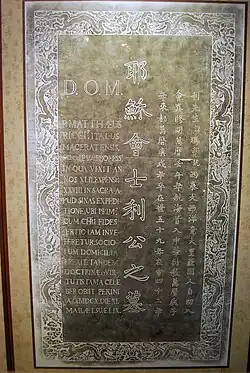 D.O.M.
P.MATTHÆUS
RICCI ITALUS
MACERATENSIS
SOC.IESU PROFESS.
IN QUA VIXIT AN
NOS XLII EXPENSIS
XXVIII IN SACRA A
PUD SINAS EXPEDI
TIONE UBI PRIM
CUM CHRI FIDES
TERTIO IAM INVE
HERETUR SOCIO
RUM DOMICILIA
EREXIT TANDEM
DOCTRINÆ VIR
TUTIS FAMA CELE
BER OBIIT PEKINI
A.C.MDCX.DIE.XI.
MAII.Æ.SUÆ.LIX.
耶穌會士利公之墓
利先生諱瑪竇號西泰大西洋意大里亞國人自幼入
會真修明萬曆壬午年航海首入中華衍教萬曆庚子
年來都萬曆庚戌年卒在世五十九年在會四十二年